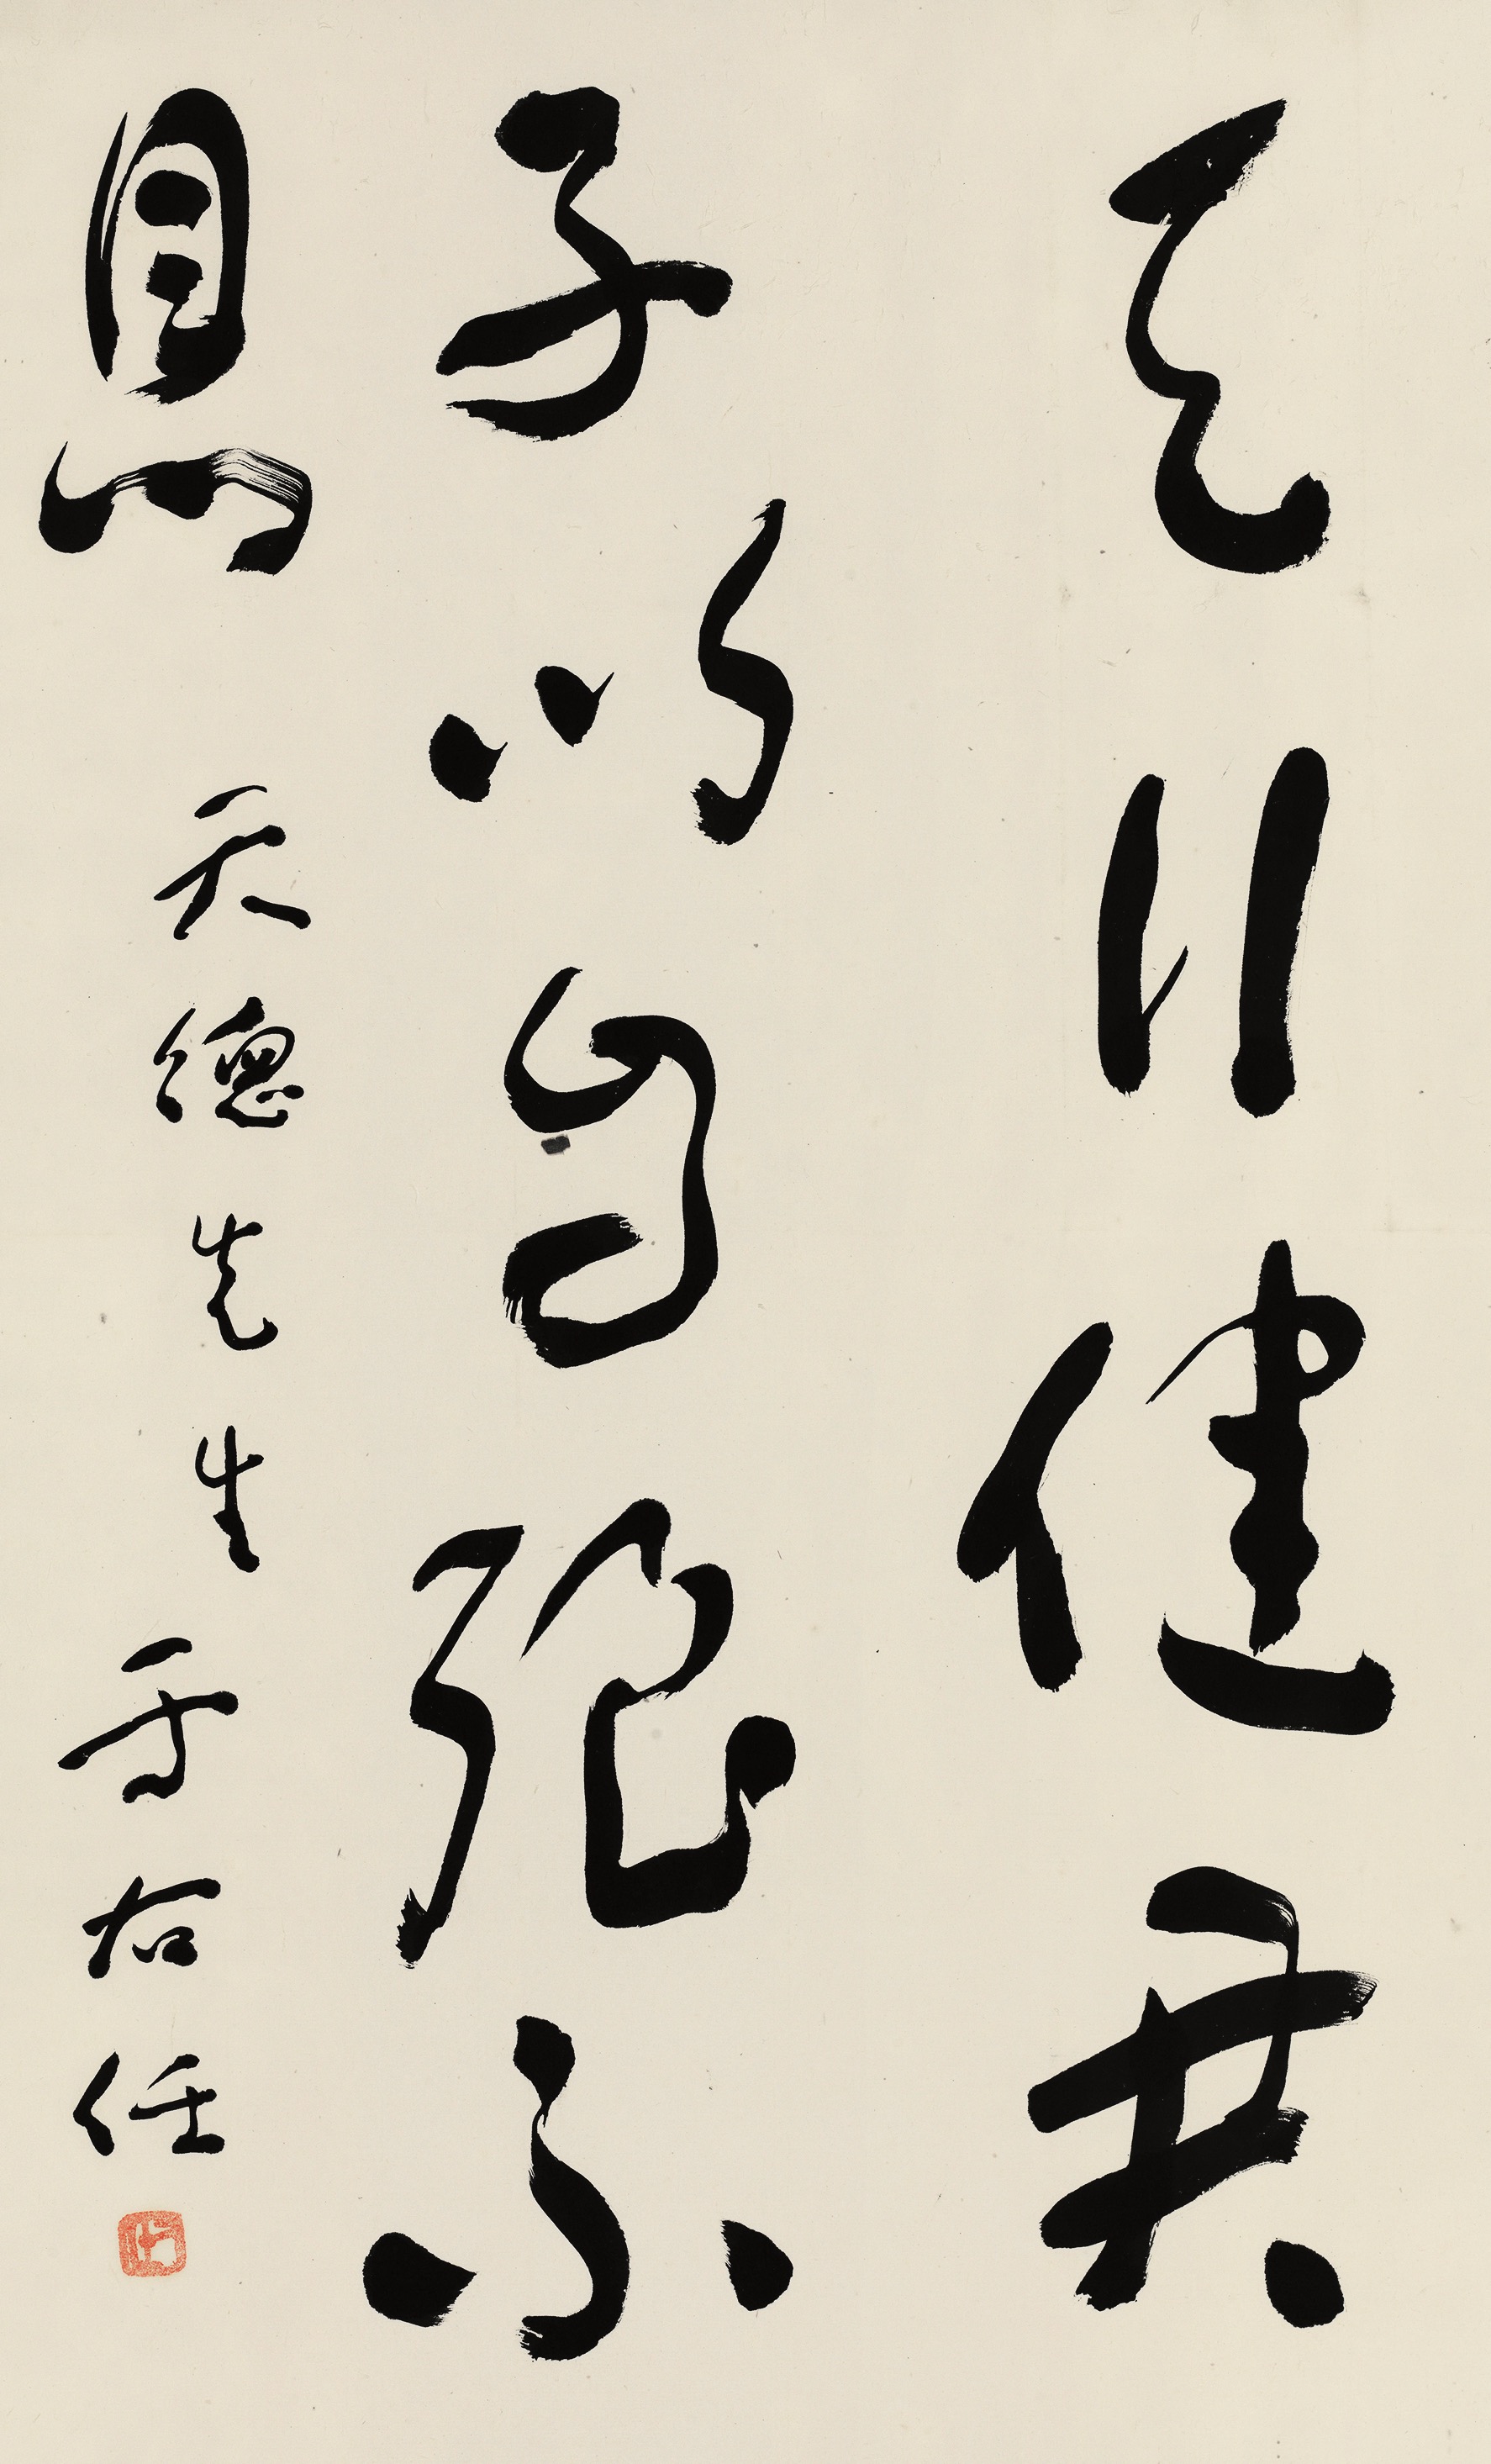 天行健君
子以自強不
息
天德先生
于右任